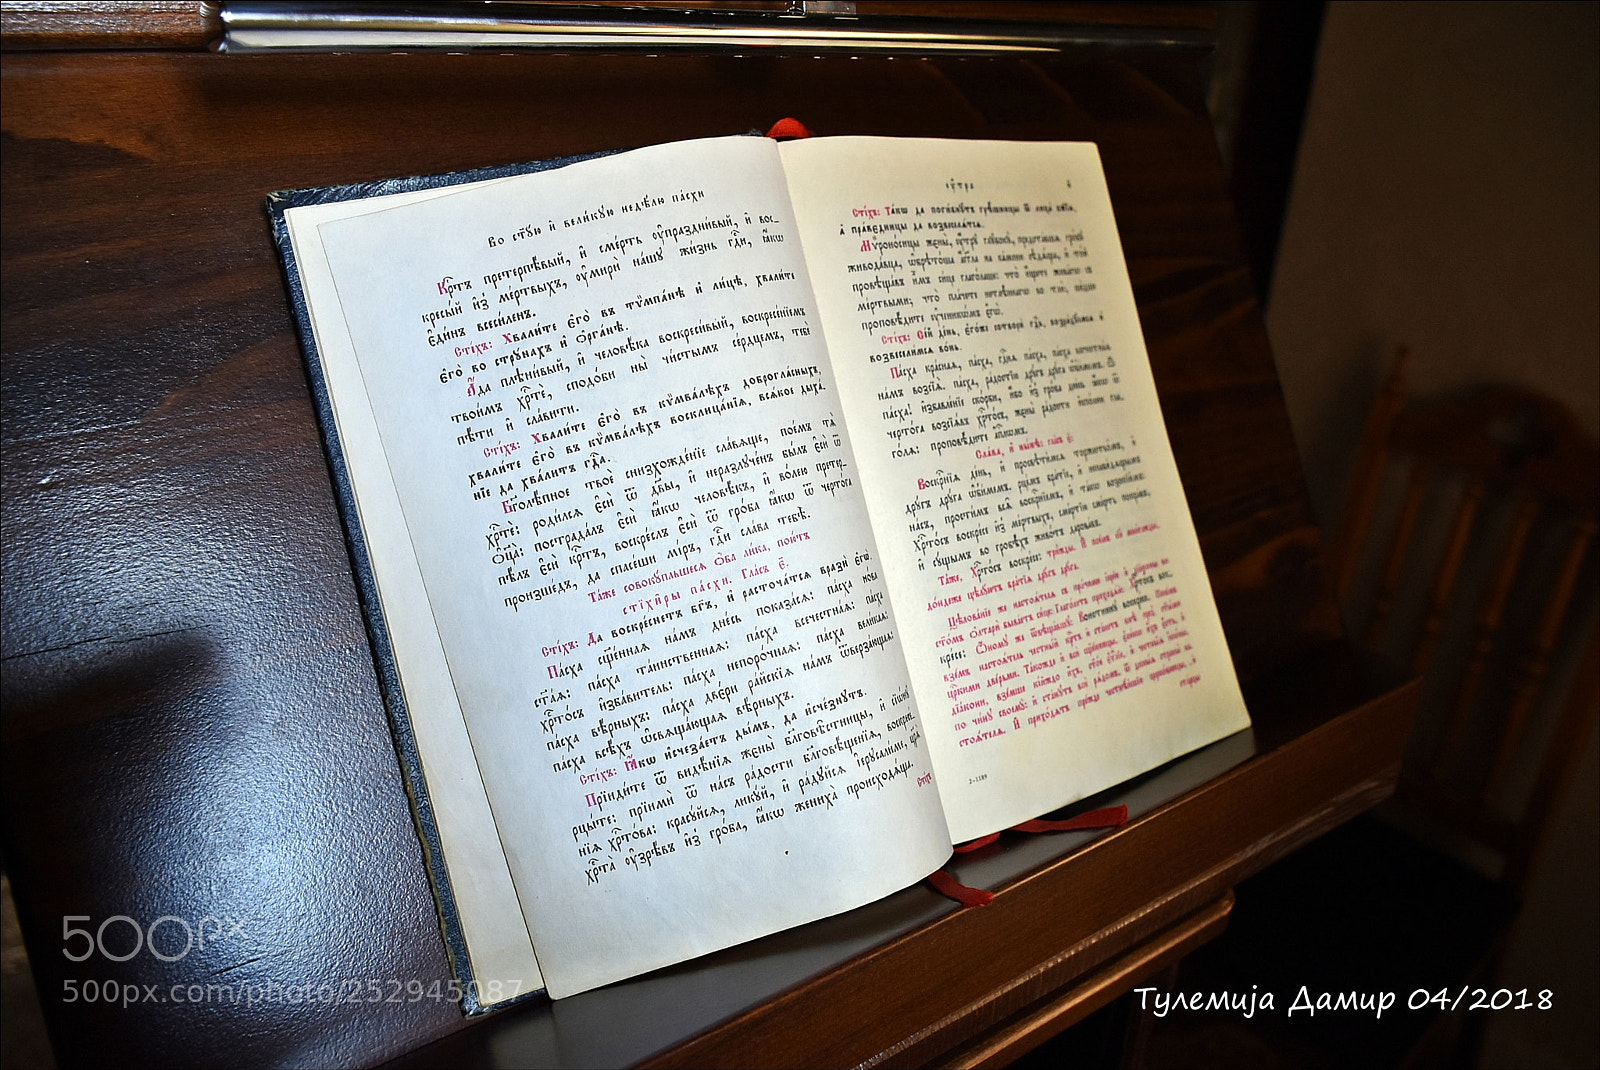 Во ст҃ꙋю и҆ вели́кꙋю недѣ́лю па́схи
Крⷭ҇тъ претерпѣ́вый, и҆ сме́рть ᲂу҆праздни́вый, и҆ вос-
кресы́й и҆з̾ ме́ртвыхъ, ᲂу҆мирѝ на́шꙋ жи́знь гдⷭ҇и, ꙗ҆́кѡ
є҆ди́нъ всеси́ленъ.
Сті́хъ: Хвали́те є҆го̀ въ тѷмпа́нѣ и҆ ли́цѣ, хвали́те
є҆го̀ во стрꙋ́нахъ и҆ ѻ҆рга́нѣ.
А҆́да плѣни́вый, и҆ человѣ́ка воскреси́вый, воскресе́нїемъ
твои́мъ хрⷭ҇тѐ, сподо́би ны̀ чи́стымъ се́рдцемъ, тебѐ
пѣ́ти и҆ сла́вити.
Сті́хъ: Хвали́те є҆го̀ въ кѷмва́лѣхъ доброгла́сныхъ,
хвали́те є҆го̀ въ кѷмва́лѣхъ восклица́нїѧ, всѧ́кое дыха́-
нїе да хва́литъ гдⷭ҇а.
Бг҃олѣ́пное твоѐ снизхожде́нїе сла́вѧще, пое́мъ тѧ̀
хрⷭ҇тѐ: роди́лсѧ є҆сѝ ѿ дв҃ы, и҆ неразлꙋ́ченъ бы́лъ є҆сѝ ѿ
ѻ҆ц҃а̀: пострада́лъ є҆сѝ ꙗ҆́кѡ человѣ́къ, и҆ во́лею претер-
пѣ́лъ є҆сѝ крⷭ҇тъ, воскре́слъ є҆сѝ ѿ гро́ба ꙗ҆́кѡ ѿ черто́га
произше́дъ, да спасе́ши мі́ръ, гдⷭ҇и сла́ва тебѣ̀.
Та́же совокꙋ́пльшесѧ ѻ҆́ба ли́ка, пою́тъ
стїхи̑ры па́схи. Гла́съ є҃.
Сті́хъ: Да воскре́снетъ бг҃ъ, и҆ расточа́тсѧ вразѝ є҆гѡ̀.
Па́сха сщ҃е́ннаѧ на́мъ дне́сь показа́сѧ: па́сха но́ва
ст҃а́ѧ: па́сха таи́нственнаѧ: па́сха всечестна́ѧ: па́сха
хрⷭ҇то́съ и҆зба́витель: па́сха непоро́чнаѧ: па́сха вели́каѧ:
па́сха вѣ́рныхъ: па́сха две́ри ра́йскїѧ на́мъ ѿверза́ющаѧ:
па́сха всѣ́хъ ѡ҆свѧща́ющаѧ вѣ́рныхъ.
Сті́хъ: Ꙗ҆́кѡ и҆счеза́етъ ды́мъ, да и҆сче́знꙋтъ.
Прїиди́те ѿ видѣ́нїѧ жены̀ бл҃говѣ́стницы, и҆ сїѡ́нꙋ
рцы́те: прїимѝ ѿ на́съ ра́дости бл҃говѣ́щенїѧ, воскрⷭ҇е́-
нїѧ хрⷭ҇то́ва: красꙋ́йсѧ, ликꙋ́й, и҆ ра́дꙋйсѧ і҆ерⷭ҇али́ме, цр҃ѧ̀
хрⷭ҇та̀ ᲂу҆зрѣ́въ и҆з̾ гро́ба, ꙗ҆́кѡ жениха̀ происходѧ́ща.
Сті́хъ
ᲂу҆́тра
Сті́хъ: Та́кѡ да поги́бнꙋтъ грѣ̑шницы ѿ лица̀ бж҃їѧ,
а҆ пра́вєдницы да возвеселѧ́тсѧ.
Мѷроно́сицы жєны̀, ᲂу҆́трꙋ глꙋбокꙋ̀, предста́вша гро́бꙋ
живода́вца, ѡ҆брѣто́ша а҆́гг҃ла на ка́мени сѣдѧ́ща, и҆ то́й
провѣща́въ и҆̀мъ си́це глаго́лаше: что̀ и҆́щете жива́го съ
ме́ртвыми; что̀ пла́чете нетлѣ́ннаго во тлѝ; ше́дше
проповѣ́дите ᲂу҆чн҃кѡ́мъ є҆гѡ̀.
Сті́хъ: Се́й де́нь, є҆го́же сотворѝ гдⷭ҇ь, возра́дꙋемсѧ и҆
возвесели́мсѧ во́нь.
Па́сха кра́снаѧ, па́сха, гдⷭ҇нѧ па́сха, па́сха всечестна́ѧ
на́мъ возсїѧ̀. па́сха, ра́достїю дрꙋ́гъ дрꙋ́га ѡ҆бы́мемъ. Ѽ
па́сха! и҆збавле́нїе ско́рби, и҆́бо и҆з̾ гро́ба дне́сь ꙗ҆́кѡ ѿ
черто́га возсїѧ́въ хрⷭ҇то́съ, жєны̀ ра́дости и҆спо́лни гл҃-
го́лѧ: проповѣ́дите а҆пⷭ҇лѡмъ.
Сла́ва, и҆ ны́нѣ: гла́съ є҃:
Воскрⷭ҇нїѧ де́нь, и҆ просвѣти́мсѧ торжество́мъ, и҆
дрꙋ́гъ дрꙋ́га ѡ҆бы́мемъ. рце́мъ бра́тїе, и҆ ненави́дѧщымъ
на́съ, прости́мъ всѧ̑ воскрⷭ҇нїемъ, и҆ та́кѡ возопїи́мъ:
Хрⷭ҇то́съ воскре́се и҆з̾ ме́ртвыхъ, сме́ртїю сме́рть попра́въ,
и҆ сꙋ́щымъ во гробѣ́хъ живо́тъ дарова́въ.
Та́же, Хрⷭ҇то́съ воскре́се: три́жды.
до́ндеже цѣлꙋ́ютъ бра́тїѧ дрꙋ́гъ дрꙋ́га.
2-1189
500px
500px.com/photo/252945087
Тулемија Дамир 04/2018